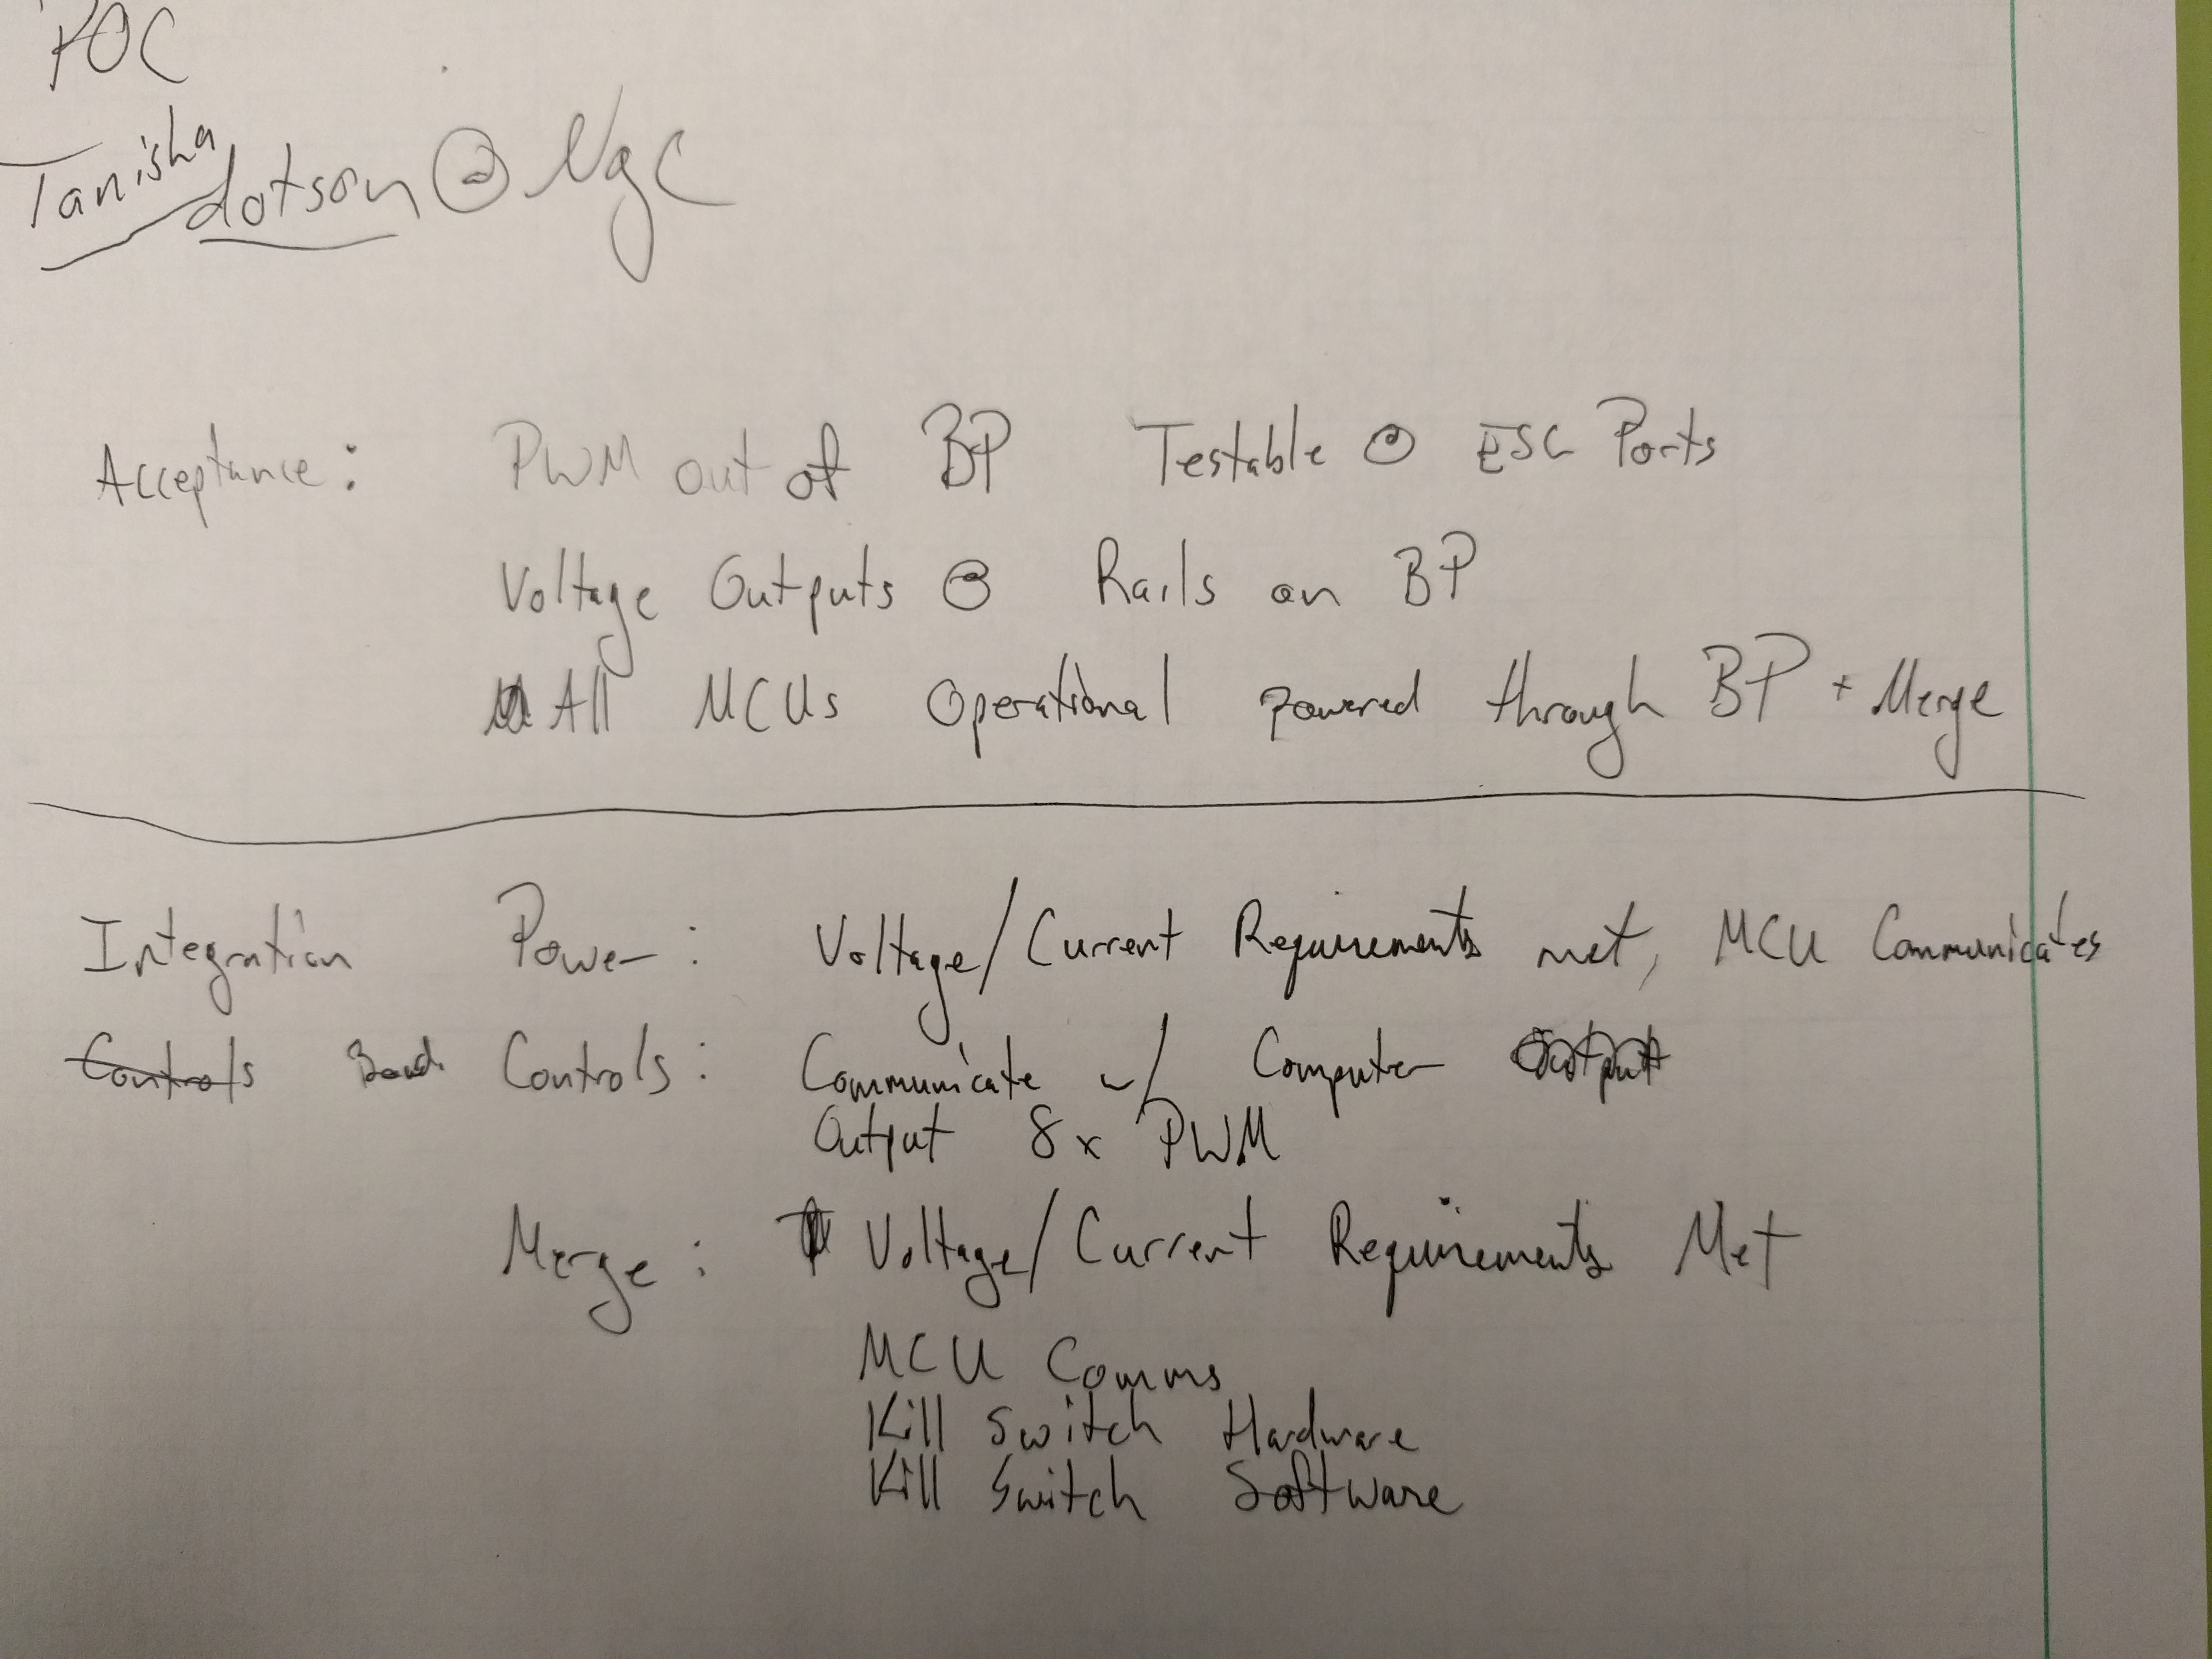 POC
Tanisha
dotson @ Ngc
Acceptance: PWM out of BP Testable @ ESC Ports
Voltage Outputs @ Rails on BP
All MCUs Operational powered through BP + Merge
Integration Power: Voltage/Current Requirements met, MCU Communicates
Controls Controls: Communicate w/ Computer Output
Output 8x PWM
Merge: Voltage/Current Requirements Met
MCU Comms
Kill Switch Hardware
Kill Switch Software